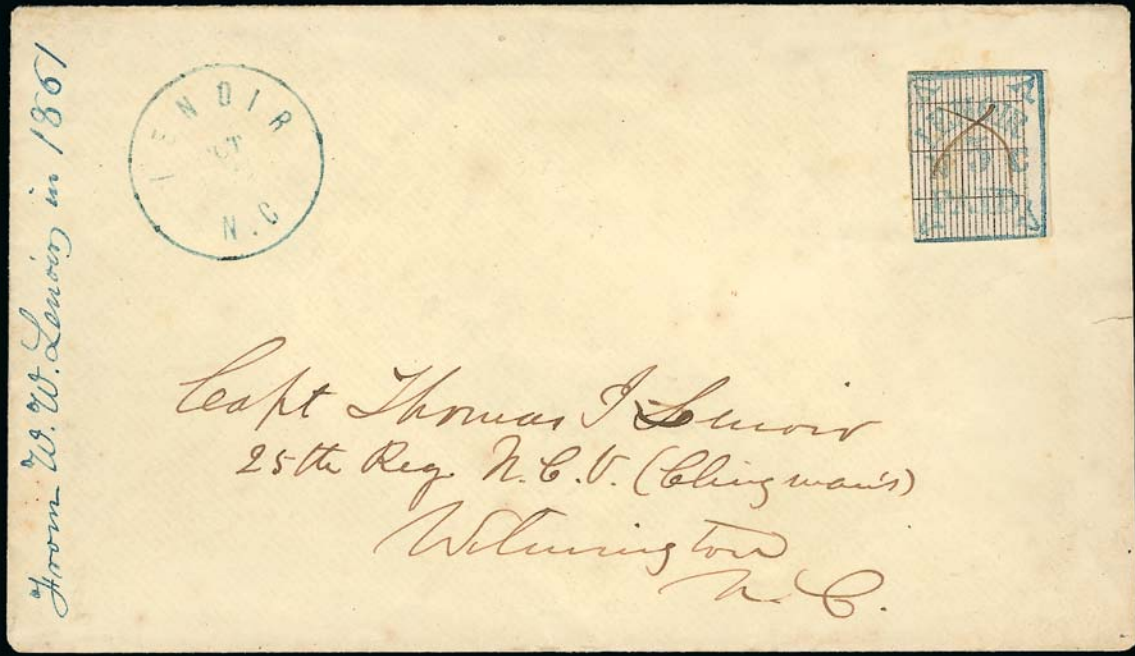 From W. W. Lenoir, in 1861
LENOIR
N.C
LENOIR
5 C
PAID
Capt Thomas I Lenoir
25th Reg. N.C.V. (Clingman's)
Wilmington
N.C.